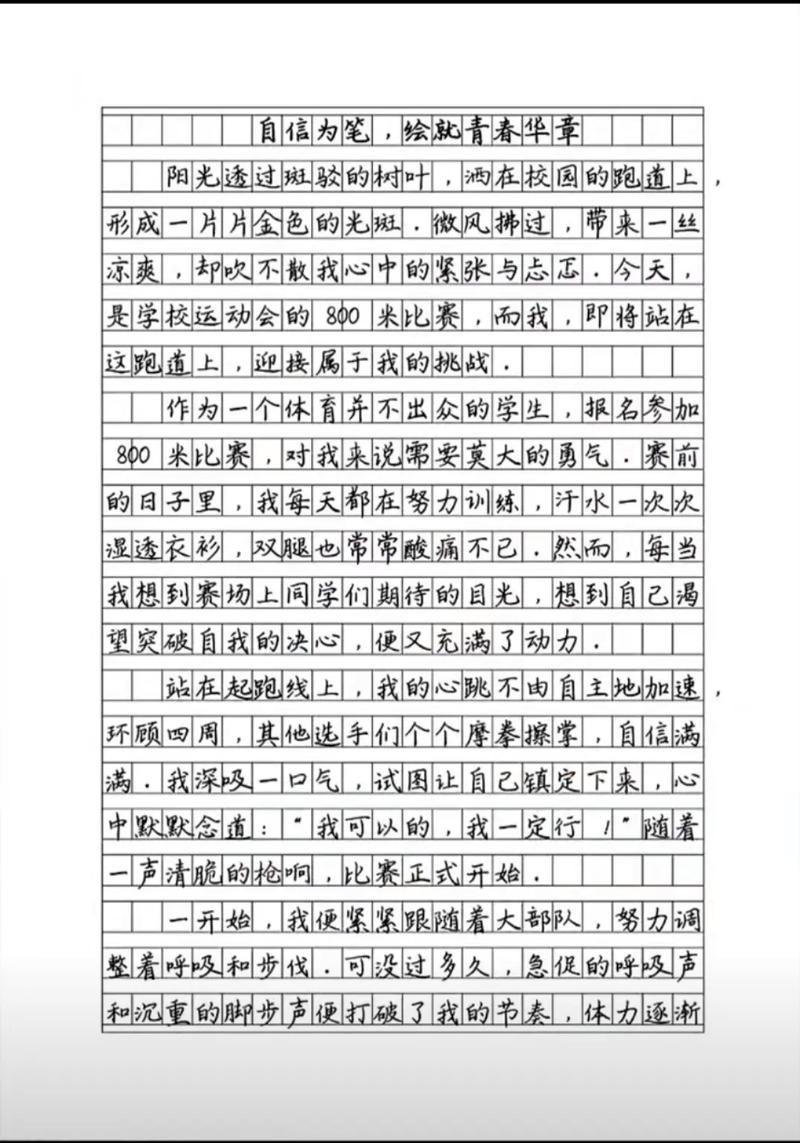 自信为笔，绘就青春华章
阳光透过斑驳的树叶，洒在校园的跑道上，
形成一片片金色的光斑．微风拂过，带来一丝
凉爽，却吹不散我心中的紧张与忐忑．今天，
是学校运动会的 800 米比赛，而我，即将站在
这跑道上，迎接属于我的挑战．
作为一个体育并不出众的学生，报名参加
800 米比赛，对我来说需要莫大的勇气．赛前
的日子里，我每天都在努力训练，汗水一次次
湿透衣衫，双腿也常常酸痛不已．然而，每当
我想到赛场上同学们期待的目光，想到自己渴
望突破自我的决心，便又充满了动力．
站在起跑线上，我的心跳不由自主地加速，
环顾四周，其他选手们个个摩拳擦掌，自信满
满．我深吸一口气，试图让自己镇定下来，心
中默默念道：“我可以的，我一定行！”随着
一声清脆的枪响，比赛正式开始．
一开始，我便紧紧跟随着大部队，努力调
整着呼吸和步伐．可没过多久，急促的呼吸声
和沉重的脚步声便打破了我的节奏，体力逐渐